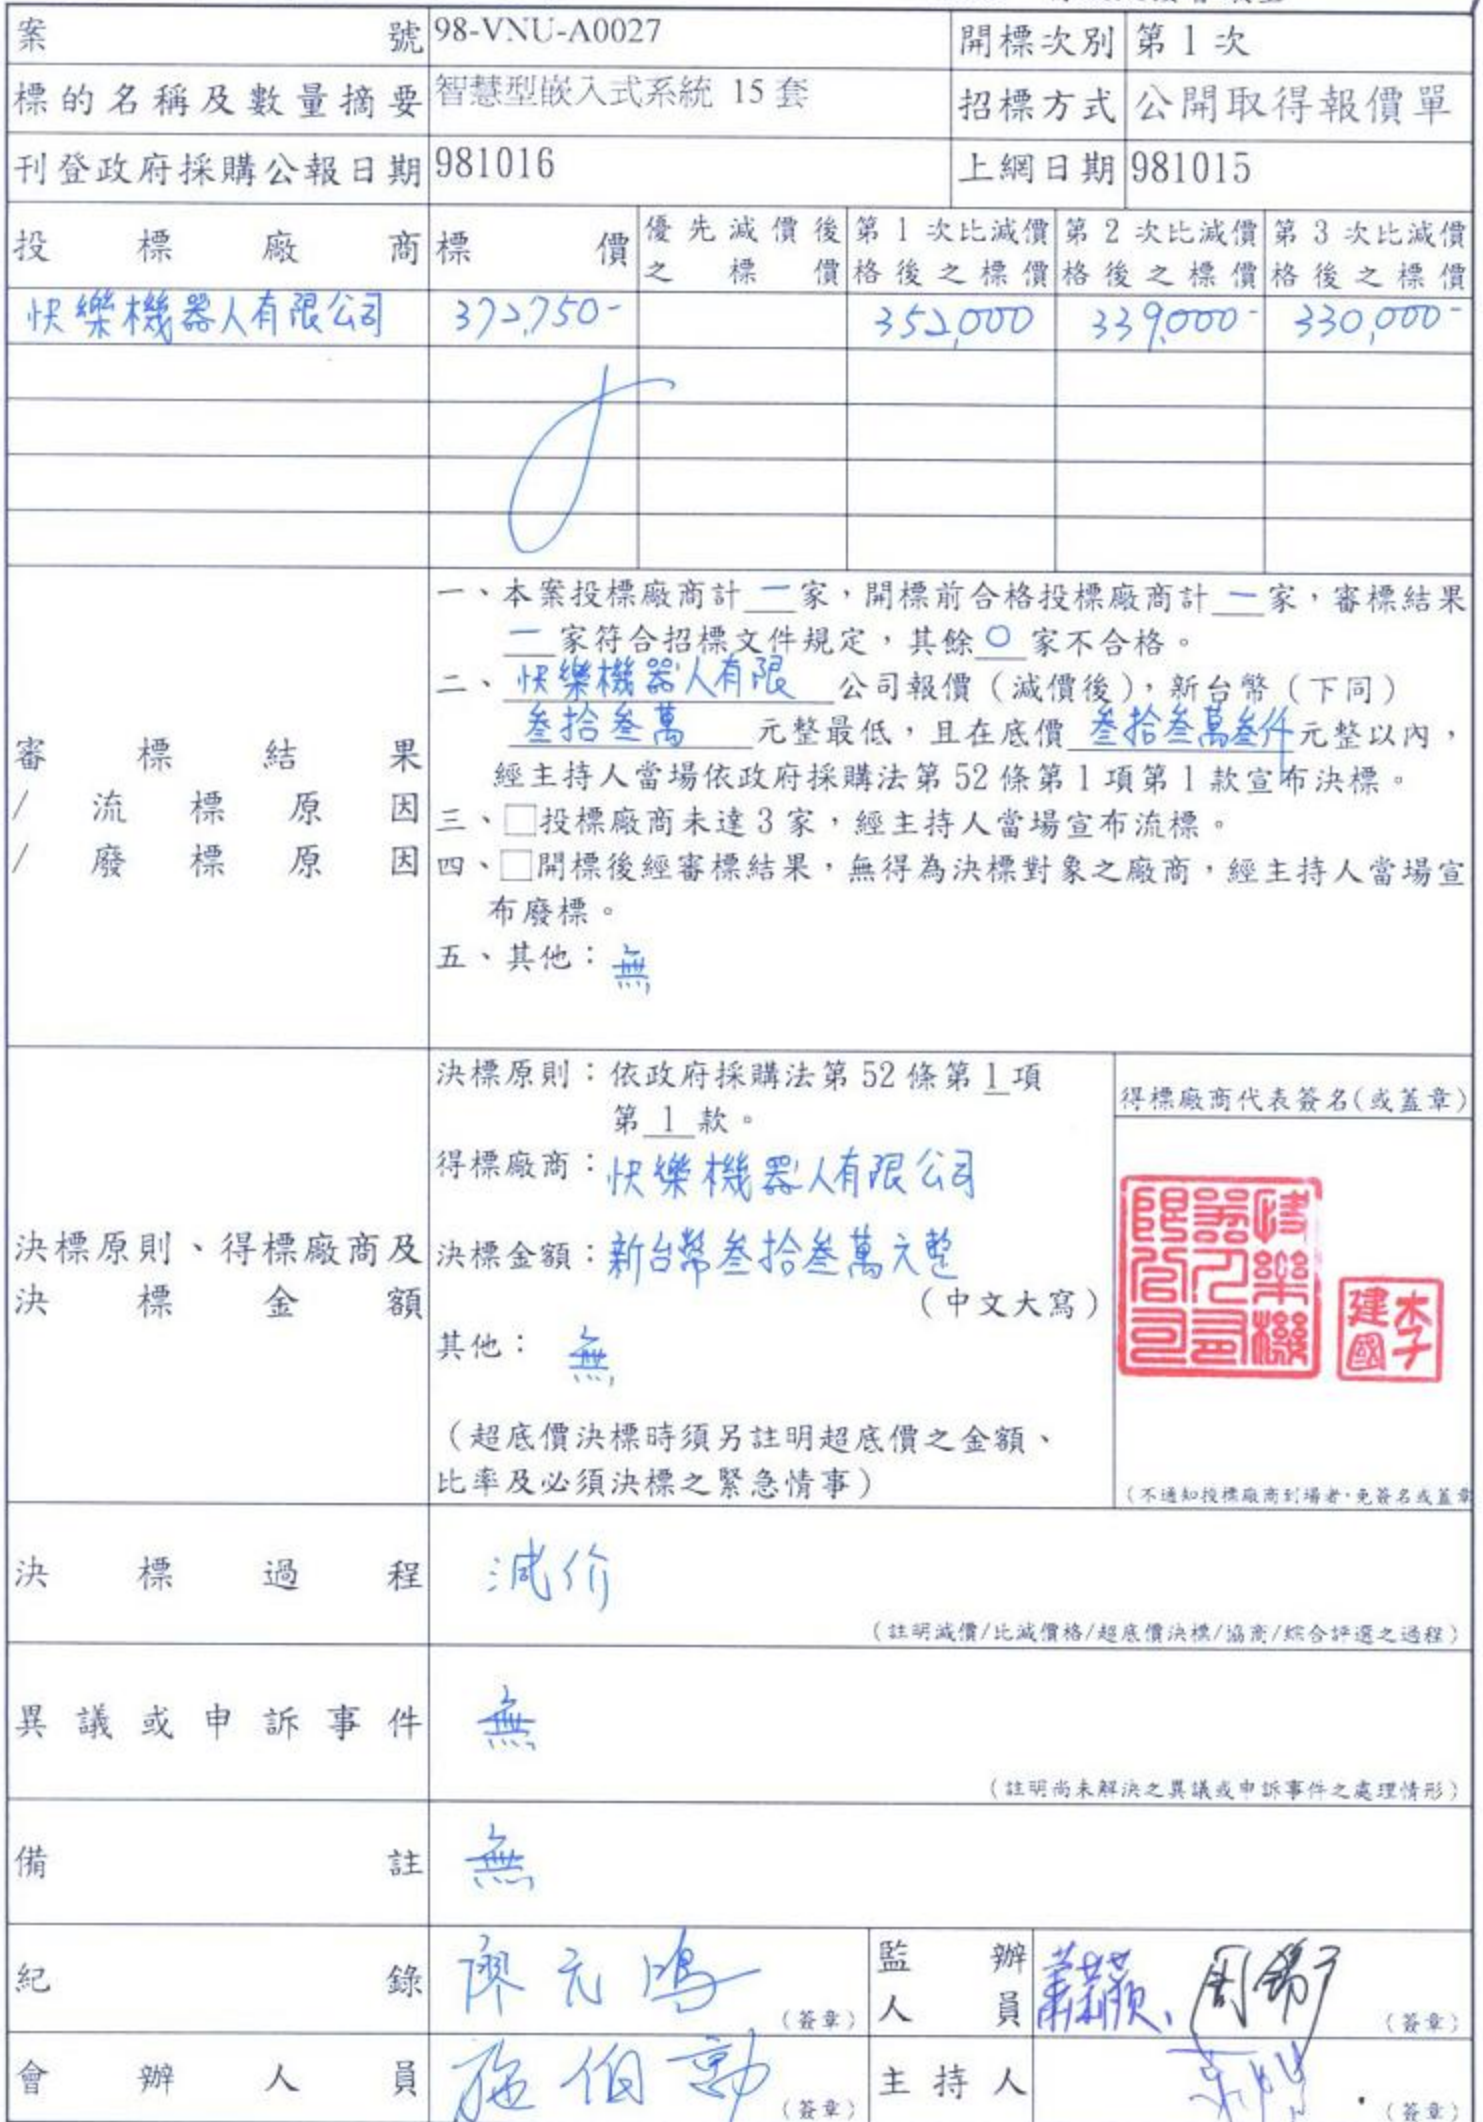 案號 98-VNU-A0027 開標次別 第1次
標的名稱及數量摘要 智慧型嵌入式系統 15套 招標方式 公開取得報價單
刊登政府採購公報日期 981016 上網日期 981015
投標廠商 標價 優先減價後之標價 第1次比減價格後之標價 第2次比減價格後之標價 第3次比減價格後之標價
快樂機器人有限公司 372,750- 352,000 339,000- 330,000-
審標結果
/流標原因
/廢標原因
一、本案投標廠商計 一 家，開標前合格投標廠商計 一 家，審標結果
一 家符合招標文件規定，其餘 0 家不合格。
二、快樂機器人有限 公司報價（減價後），新台幣（下同）
叁拾叁萬 元整最低，且在底價 叁拾叁萬叁仟 元整以內，
經主持人當場依政府採購法第52條第1項第1款宣布決標。
三、□投標廠商未達3家，經主持人當場宣布流標。
四、□開標後經審標結果，無得為決標對象之廠商，經主持人當場宣
布廢標。
五、其他：無
決標原則、得標廠商及
決標金額
決標原則：依政府採購法第52條第 1 項
第 1 款。
得標廠商：快樂機器人有限公司
決標金額：新台幣叁拾叁萬元整
（中文大寫）
其他：無
（超底價決標時須另註明超底價之金額、
比率及必須決標之緊急情事）
得標廠商代表簽名(或蓋章)
快樂機器人有限公司
李建國
（不通知投標廠商到場者，免簽名或蓋章
決標過程 減价
（註明減價/比減價格/超底價決標/協商/綜合評選之過程）
異議或申訴事件 無
（註明尚未解決之異議或申訴事件之處理情形）
備註 無
紀錄 廖元鴻 （簽章） 監辦人員 （簽章）
會辦人員 施伯勳 （簽章） 主持人 （簽章）